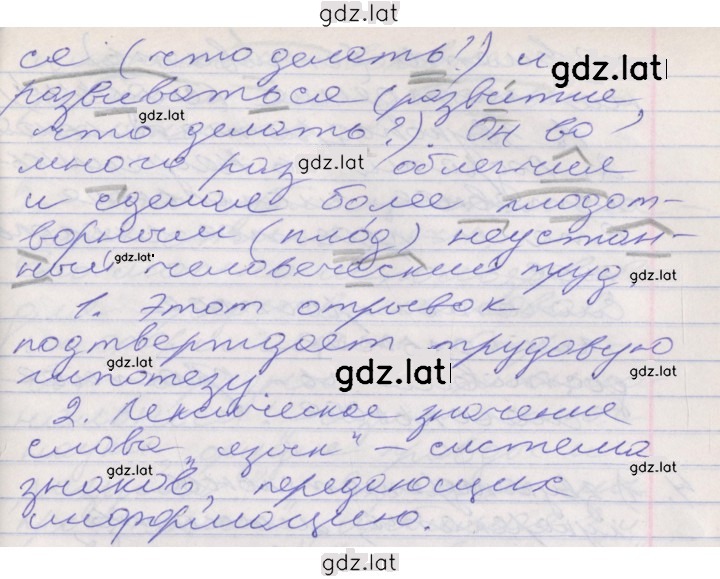 gdz.lat
ся (что делать?) и
gdz.lat
развиваться (развитие,
gdz.lat
gdz.lat
что делать?). Он во
много раз облегчил
gdz.lat
и сделал более плодот-
ворным (плод) неустан-
gdz.lat
ный человеческий труд.
gdz.lat
gdz.lat
1. Этот отрывок
подтверждает трудовую
gdz.lat
gdz.lat
gdz.lat
гипотезу
2. Лексическое значение
слова „язык" – система
gdz.lat
gdz.lat
знаков, передающих
информацию.
gdz.lat